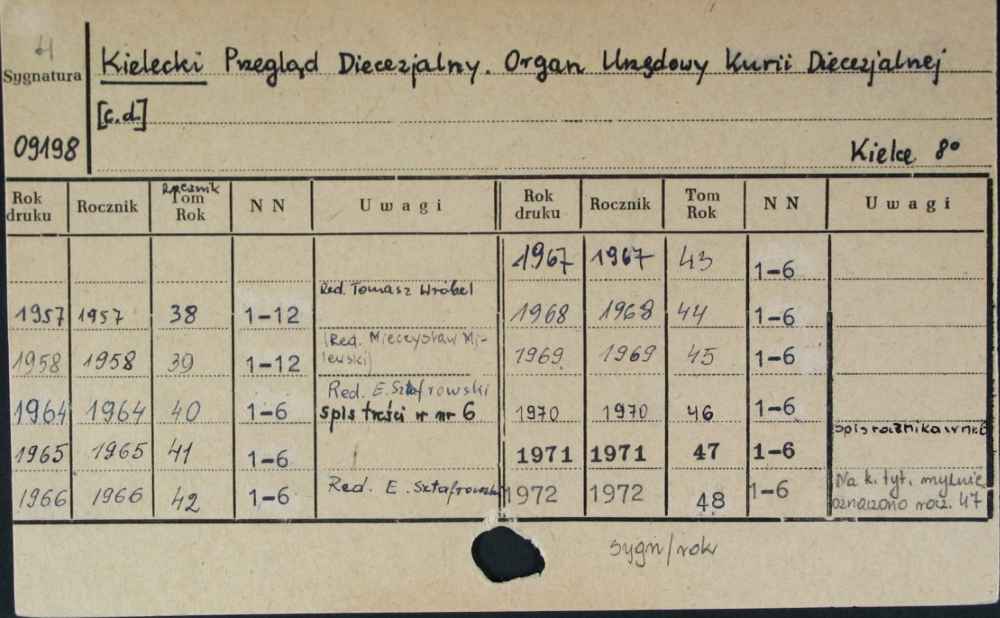 4
Sygnatura
Kielecki Przegląd Diecezjalny. Organ Urzędowy Kurii Diecezjalnej
[c.d.]
09198
Kielce 8°
Rok druku Rocznik Rocznik Tom Rok NN Uwagi Rok druku Rocznik Tom Rok NN Uwagi
1967 1967 43 1-6
1957 1957 38 1-12 Red. Tomasz Wróbel 1968 1968 44 1-6
1958 1958 39 1-12 (Red. Mieczysław Mi-lewski) 1969 1969 45 1-6
1964 1964 40 1-6 Red. E. Sztafrowski spis treści w nr 6 1970 1970 46 1-6
1965 1965 41 1-6 1971 1971 47 1-6 spis rocznika w nr 6
1966 1966 42 1-6 Red. E. Sztafrowski 1972 1972 48 1-6 Na k. tyt. mylnie oznaczono rocz. 47
sygn/rok